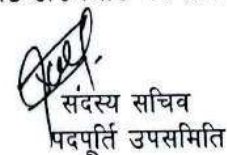 संदस्य सचिव
पदपूर्ति उपसमिति